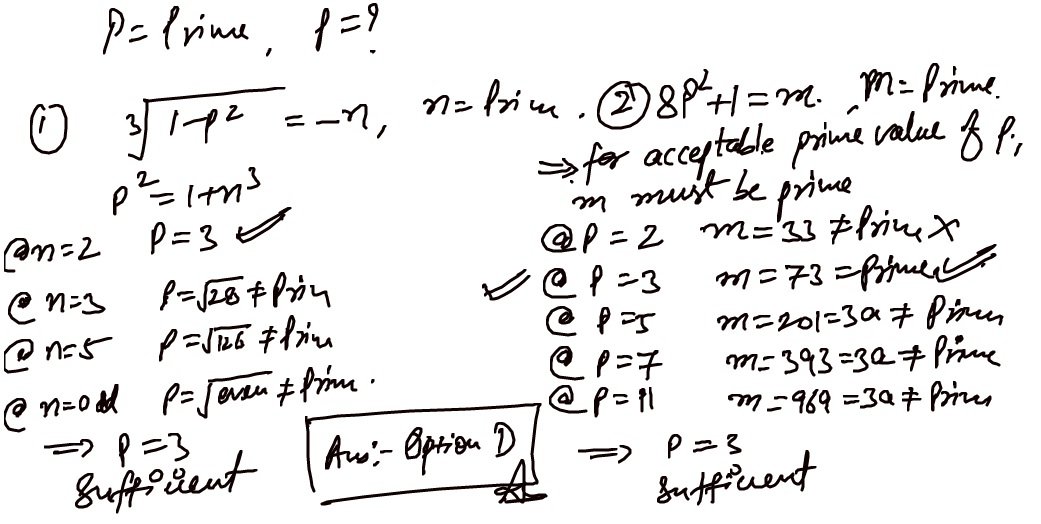 P = Prime, P = ?
① ∛(1-P²) = -n, n = Prime.
P² = 1+n³
@n=2 P=3 ✓
@ n=3 P=√28 ≠ Prim
@ n=5 P=√126 ≠ Prim
@ n=odd P=√even ≠ Prime.
⇒ P=3
Sufficient
② 8P²+1 = m. , m = Prime.
⇒ for acceptable prime value of P,
m must be prime
@ P=2 m=33 ≠ Prime X
✓ @ P=3 m=73 = Prime ✓
@ P=5 m=201=3a ≠ Prime
@ P=7 m=393=3a ≠ Prime
@ P=11 m=969=3a ≠ Prime
⇒ P=3
Sufficient
Ans:- Option D